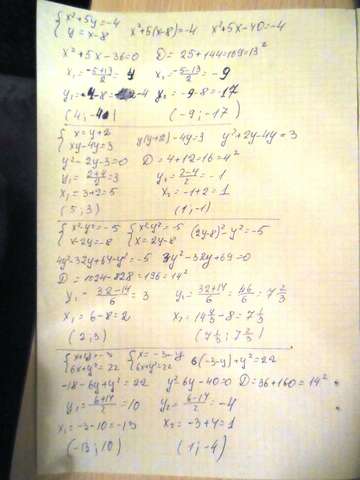 { x²+5y=-4
{ y=x-8 x²+5(x-8)=-4 x²+5x-40=-4
x²+5x-36=0 D=25+144=169=13²
x₁=(-5+13)/2=4 x₂=(-5-13)/2=-9
y₁=4-8=-4 y₂=-9-8=17
(4;-4) (-9;-17)
{ x=y+2
{ xy-4y=3 y(y+2)-4y=3 y²+2y-4y=3
y²-2y-3=0 D=4+12=16=4²
y₁=(2+4)/2=3 y₁=(2-4)/2=-1
x₁=3+2=5 x₂=-1+2=1
(5;3) (1;-1)
{ x²-y²=-5 { x²-y²=-5 (2y-8)²-y²=-5
{ x-2y=-8 { x=2y-8
4y²-32y+64-y²=-5 3y²-32y+69=0
D=1024-828=196=14²
y₁=(32-14)/6=3 y₂=(32+14)/6=46/6=7 2/3
x₁=6-8=2 x₂=14 4/3-8=7 1/3
(2;3) (7 1/3; 7 2/3)
{ x+y=-3 { x=-3-y
{ 6x+y²=22 { 6x+y²=22 6(-3-y)+y²=22
-18-6y+y²=22 y²-6y-40=0 D=36+160=14²
y₁=(6+14)/2=10 y₂=(6-14)/2=-4
x₁=-3-10=-13 x₂=-3+4=1
(-13;10) (1;-4)